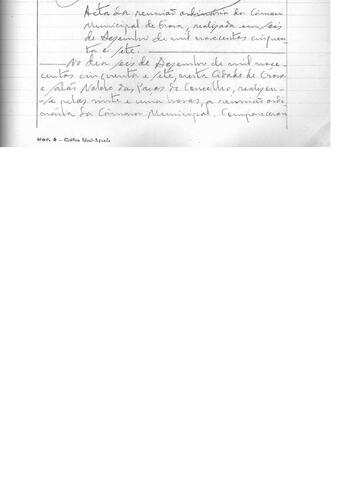 Acta da reunião ordinária da Câmara
Municipal de Évora, realizada em seis
de Dezembro de mil novecentos cinquen-
ta e sete.
No dia seis de Dezembro de mil nove-
centos cinquenta e sete, nesta Cidade de Évora
e salão Nobre dos Paços do Concelho, realizou-
-se pelas vinte e uma horas, a reunião ordi-
nária da Câmara Municipal. Compareceram
Mod. 6 - Gráfica